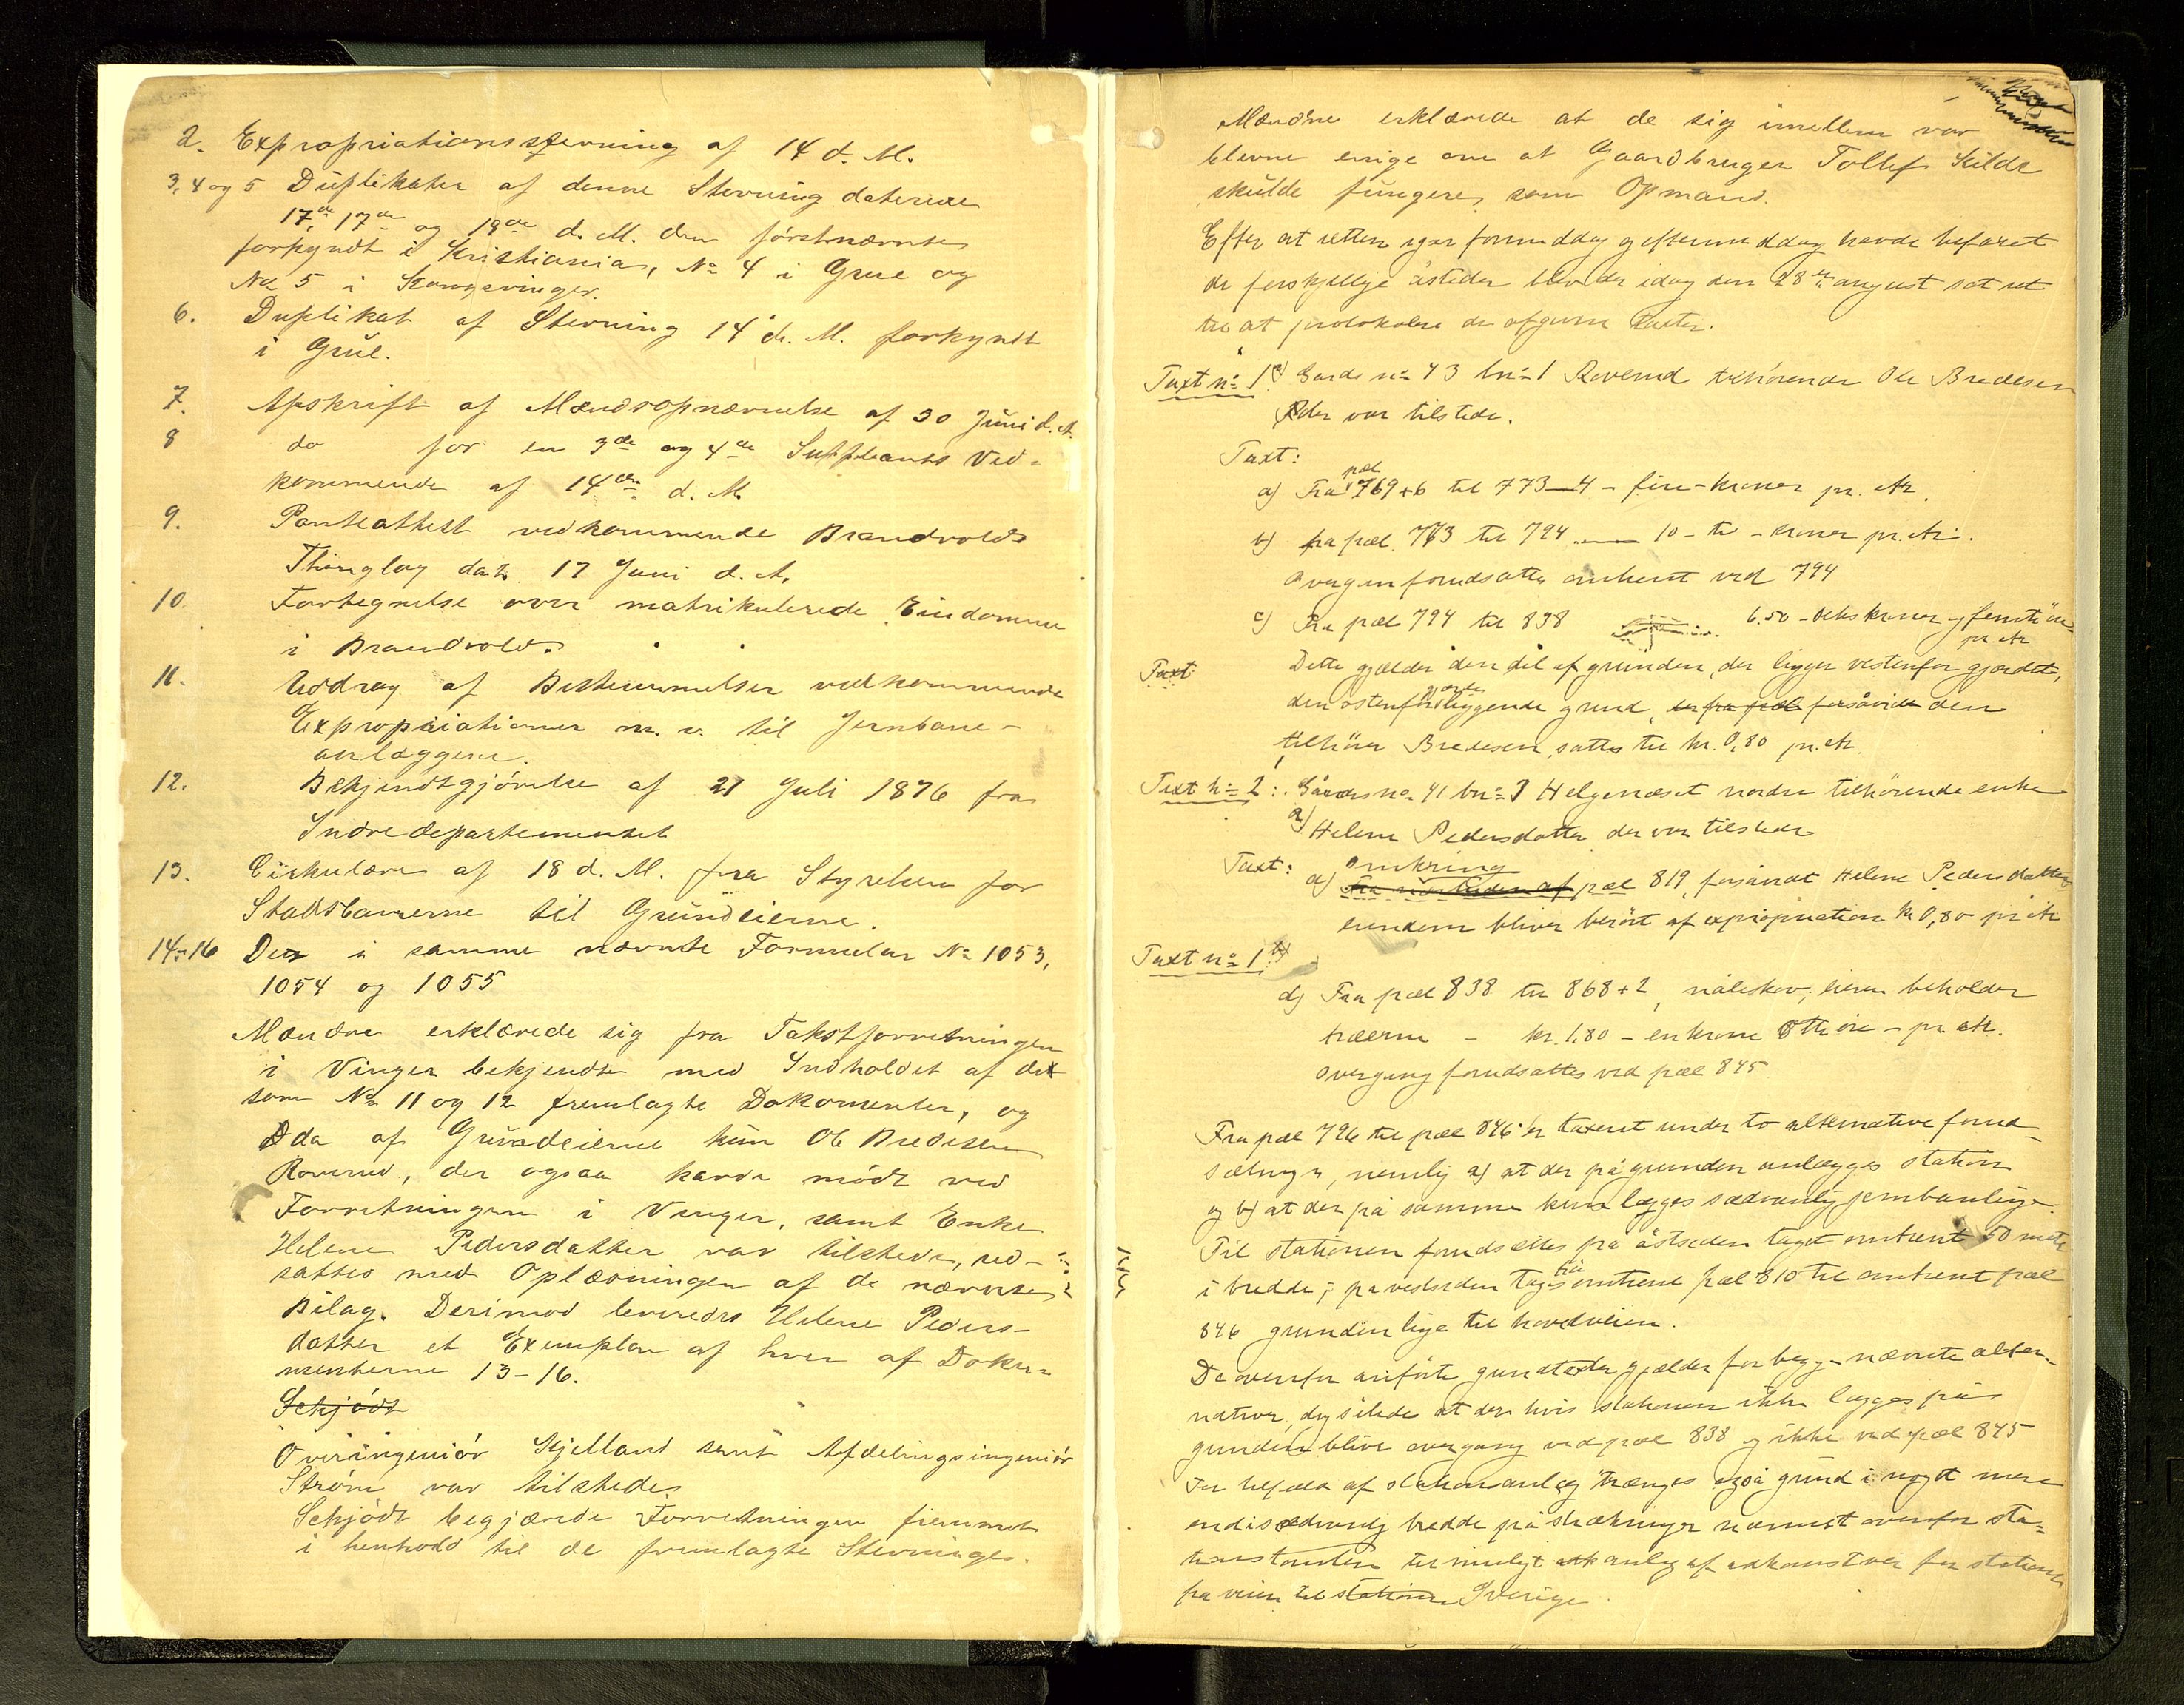 2. Expropriationsstevning af 14 d. M.
3, 4 og 5 Duplikater af denne Stevning daterede
17de, 17de og 18de d. M. den førstnævnte
forkyndt i Kristiania, No 4 i Grue og
No 5 i Kongsvinger.
6. Duplikat af Stevning 14 d. M. forkyndt
i Grue.
7. Afskrift af Mændsopnævnelse af 30 Juni d. A.
8 do for en 3de og 4de Suppleants Ved-
kommende af 14de d. M.
9. Panteattest vedkommende Brandvolds
Thinglag dat. 17 Juni d. A.
10. Fortegnelse over matrikulerede Eiendomme
i Brandvold.
11. Uddrag af Bestemmelser vedkommende
Expropriationer m. v. til Jernbane-
anlæggene.
12. Bekjendtgjørelse af 21 Juli 1876 fra
Indredepartementet
13. Cirkulære af 18 d. M. fra Styrelsen for
Statsbanerne til Grundeierne.
14-16 De i samme nævnte Formular No 1053,
1054 og 1055
Mændne erklærede sig fra Takstforretningen
i Vinger bekjendte med Indholdet af de
som No 11 og 12 fremlagte Dokumenter, og
da af Grundeierne kun Ole Bredesen
Roverud, der ogsaa havde mødt ved
Forretningen i Vinger, samt Enke
Helene Pedersdatter var tilstede, und-
sattes med Oplæsningen af de nævnte
Bilag. Derimod leveredes Helene Peders-
datter et Exemplar af hver af Doku-
menterne 13-16.
Schjødt
Overingeniør Kjelland samt Afdelingsingeniør
Strøm var tilstede.
Schjødt begjærede Forretningen fremmet
i henhold til de fremlagte Stevninger.
Mændne erklærede at de sig imellem var
blevne enige om at Gaardbruger Tollef Kilde
skulde fungere som Opmand.
Efter at retten igaar formiddag og eftermiddag havde befaret
de forskjellige åsteder blev der idag den 28de august sat ret
til at protokolere de afgivne taxter.
Taxt no 1 a) Gards no 43 bno 1 Roverud tilhørende Ole Bredesen
der var tilstede.
Taxt:
a) Fra pæl 769+6 til 773 — 4 - fire - kroner pr. Ar.
b) fra pæl 773 til 794 — 10 - ti - kroner pr. Ar.
Overgang forudsattes omtrent ved 794
c) Fra pæl 794 til 838 6.50 - seks kroner og femti øre
pr. Ar
Taxt Dette gjælder den del af grunden, der ligger vestenfor gjærdet,
den østenfor gjærdet liggende grund, forsåvidt den
tilhører Bredesen, sattes til kr. 0,80 pr. Ar.
Taxt no 2: Gårds no 41 bno 3 Helgenæset nordre tilhørende enke
a) Helene Pedersdatter, der var tilstede
Taxt: a) Omkring pæl 819, forsåvidt Helene Pedersdatters
eiendom bliver berørt af expropriation kr 0,80 pr Ar
Taxt no 1 b)
d) Fra pæl 838 til 868+2, nåleskov, eieren beholder
træerne - kr. 1.80 - en krone otti øre - pr. Ar.
Overgang forudsattes ved pæl 845
Fra pæl 796 til pæl 846 er taxeret under to alternative forud-
sætninger, nemlig a) at der på grunden anlægges station
og b) at der på samme kun lægges sædvanlig jernbanelinje.
Til stationen forudsættes på østsiden taget omtrent 50 meter
i bredde; på vestsiden tages fra omtrent pæl 810 til omtrent pæl
846 grunden lige til hovedveien.
De ovenfor anførte grundtaxter gjælder for begge nævnte alter-
nativer, dog således at der hvis stationen ikke lægges på
grunden bliver overgang ved pæl 838 og ikke ved pæl 845
For tilfælde af stationsanlæg trænges også grund i noget mere
end sædvanlig bredde på strækninger nærmest ovenfor sta-
tionstomten til muligt anlæg af adkomstvei for stationen
fra veien til stationen Sverige